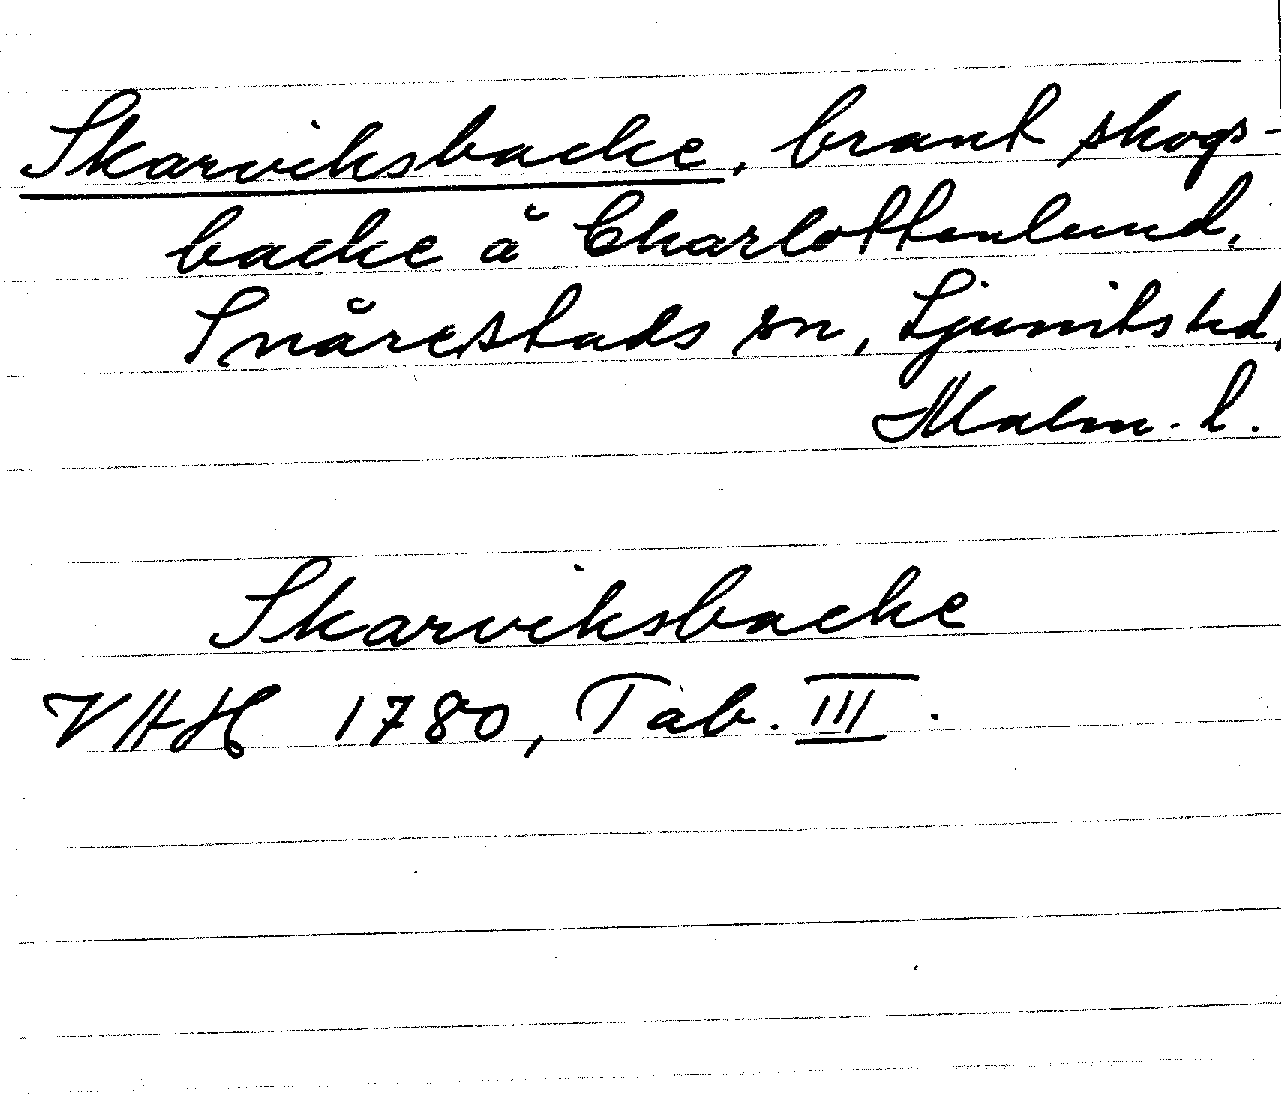 Skarviksbacke, brant skogs-
backe å Charlottenlund,
Snårestads sn, Ljunits hd,
Malm. l.
Skarviksbacke
VAH 1780, Tab. III.